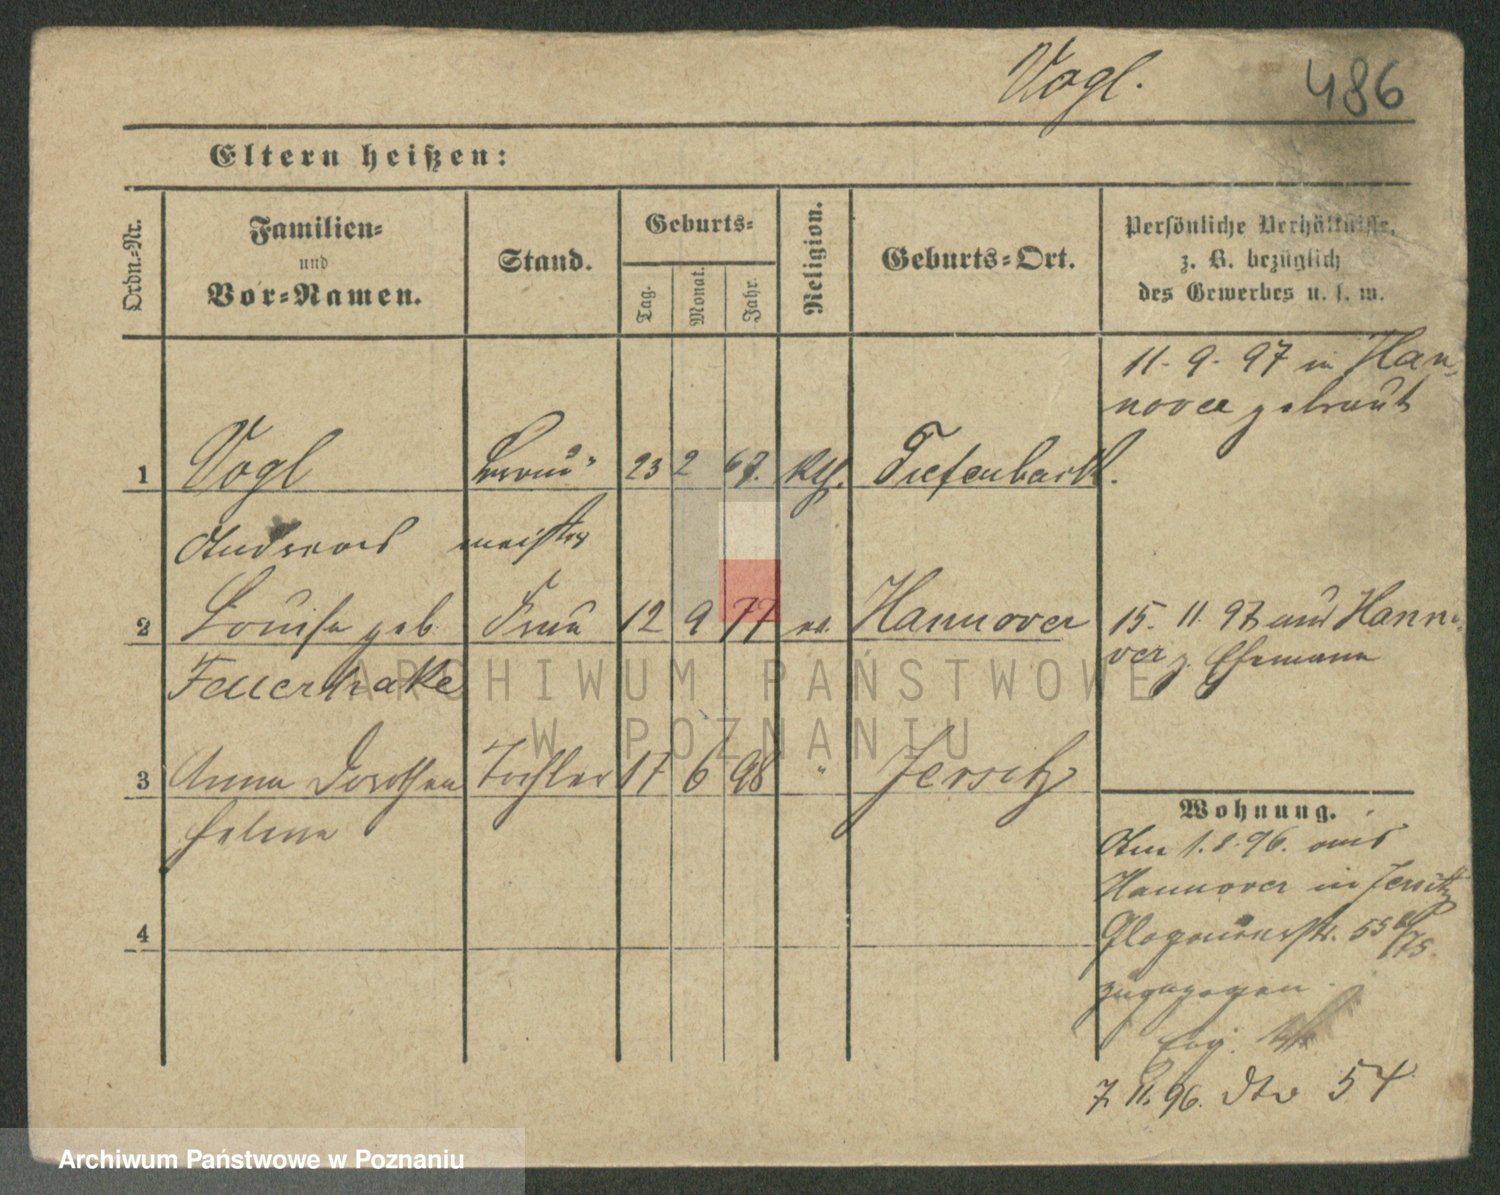 Vogl. 486
Eltern heißen:
Ordn.-Nr.
Familien-
und
Vor-Namen.
Stand.
Geburts-
Tag.
Monat.
Jahr.
Religion.
Geburts-Ort.
Persönliche Verhältnisse,
z. B. bezüglich
des Gewerbes u. s. w.
11. 9. 97 in Han-
nover getraut
1 Vogl 23 2 67. Kth. Tiefenbach.
Andreas meister
2 Louise geb. Frau 12 9 77 ev. Hannover
15. 11. 97 aus Hanno-
ver z. Ehemann
Feuerhake
3 Anna Dorothea Tochter 17 6 98 " Jersitz
Helene
4
Wohnung.
Am 1. 8. 96. aus
Hannover in Jersitz
Glogauerstr. 55
zugezogen.
7. 11. 96. dto 54
ARCHIWUM PAŃSTWOWE
W POZNANIU
Archiwum Państwowe w Poznaniu